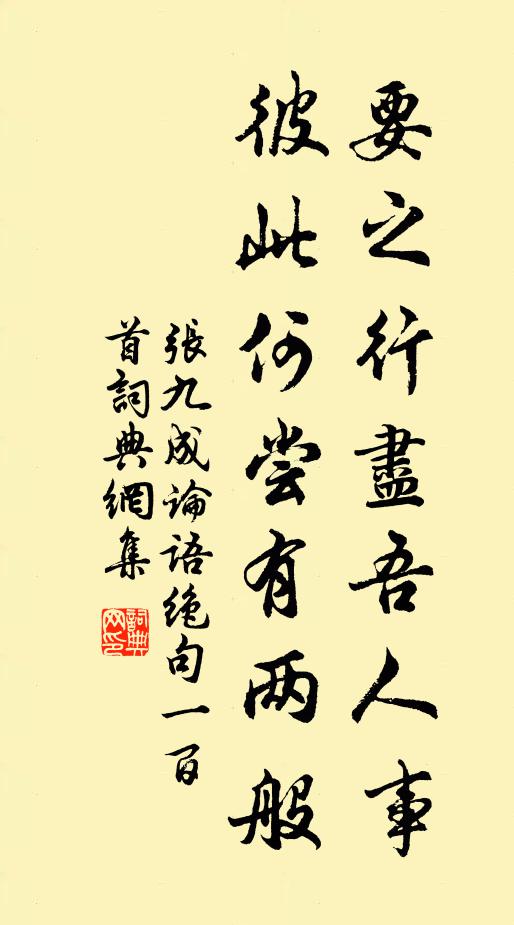 要之行盡吾人事
彼此何尝有两般
張九成論語绝句一百
首詞典網集
詞典
网印